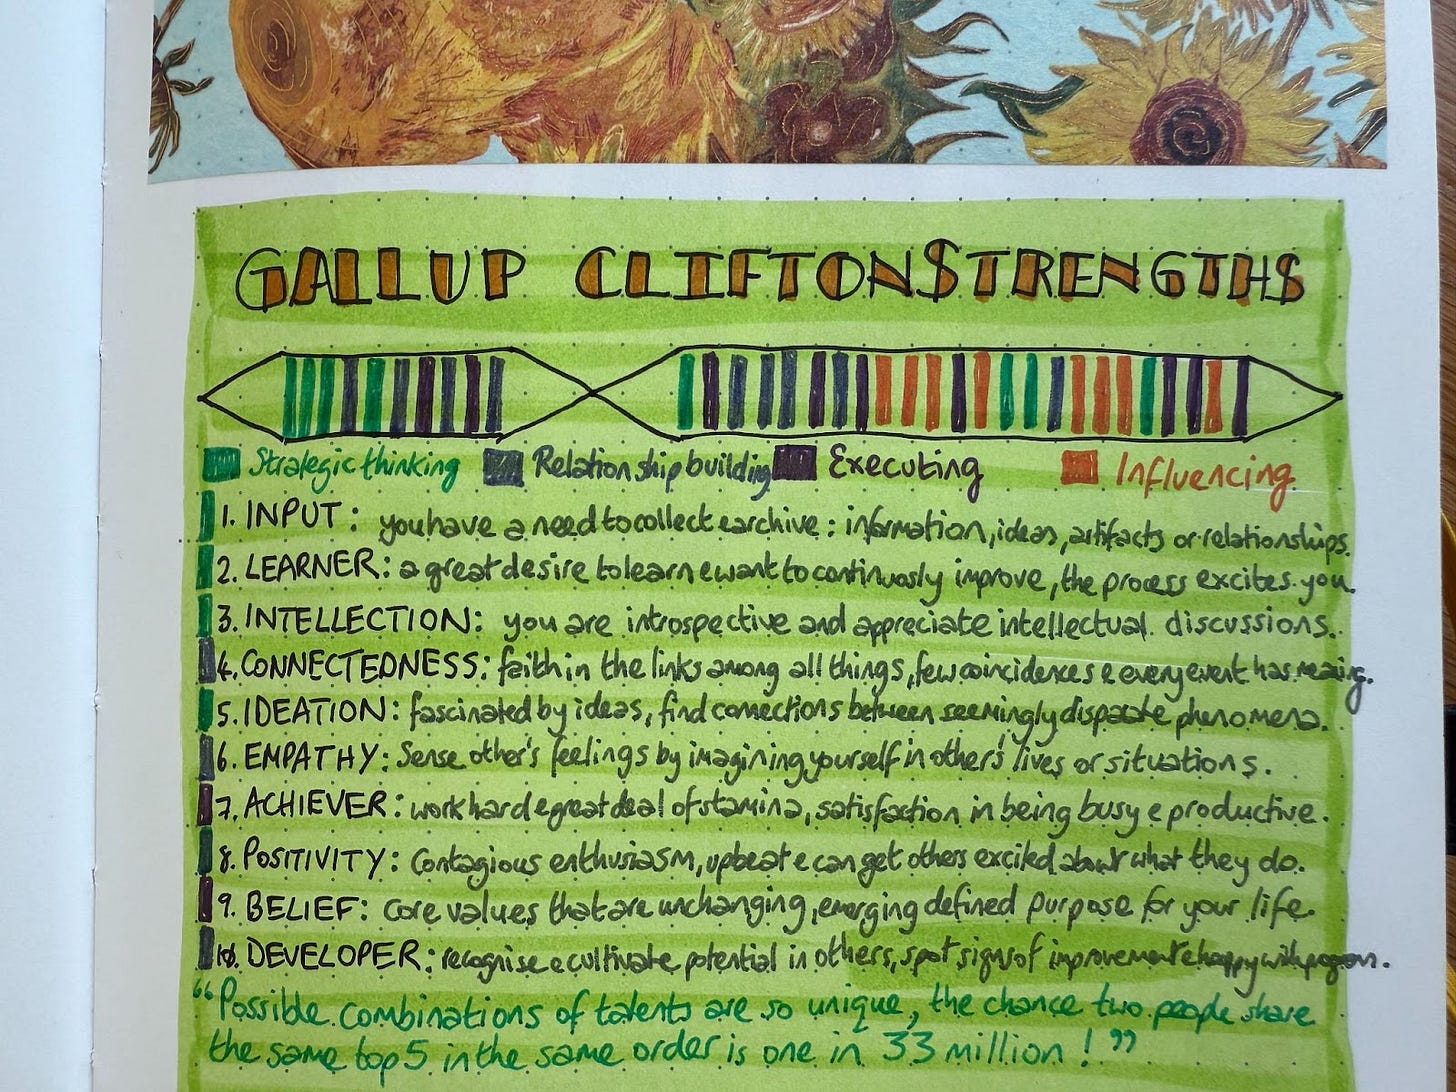 GALLUP CLIFTONSTRENGTHS
Strategic thinking Relationship building Executing Influencing
1. INPUT: you have a need to collect e archive: information, ideas, artifacts or relationships.
2. LEARNER: a great desire to learn e want to continuosly improve, the process excites you.
3. INTELLECTION: you are introspective and appreciate intellectual discussions.
4. CONNECTEDNESS: faith in the links among all things, few coincidences e every event has meaning.
5. IDEATION: fascinated by ideas, find connections between seemingly disparate phenomena.
6. EMPATHY: Sense other's feelings by imagining yourself in other's lives or situations.
7. ACHIEVER: work hard e great deal of stamina, satisfaction in being busy e productive.
8. POSITIVITY: Contagious enthusiasm, upbeat e can get others excited about what they do.
9. BELIEF: Core values that are unchanging, emerging defined purpose for your life.
10. DEVELOPER: recognise e cultivate potential in others, spot signs of improvement e happy with
"Possible combinations of talents are so unique, the chance two people share
the same top 5 in the same order is one in 33 million!"